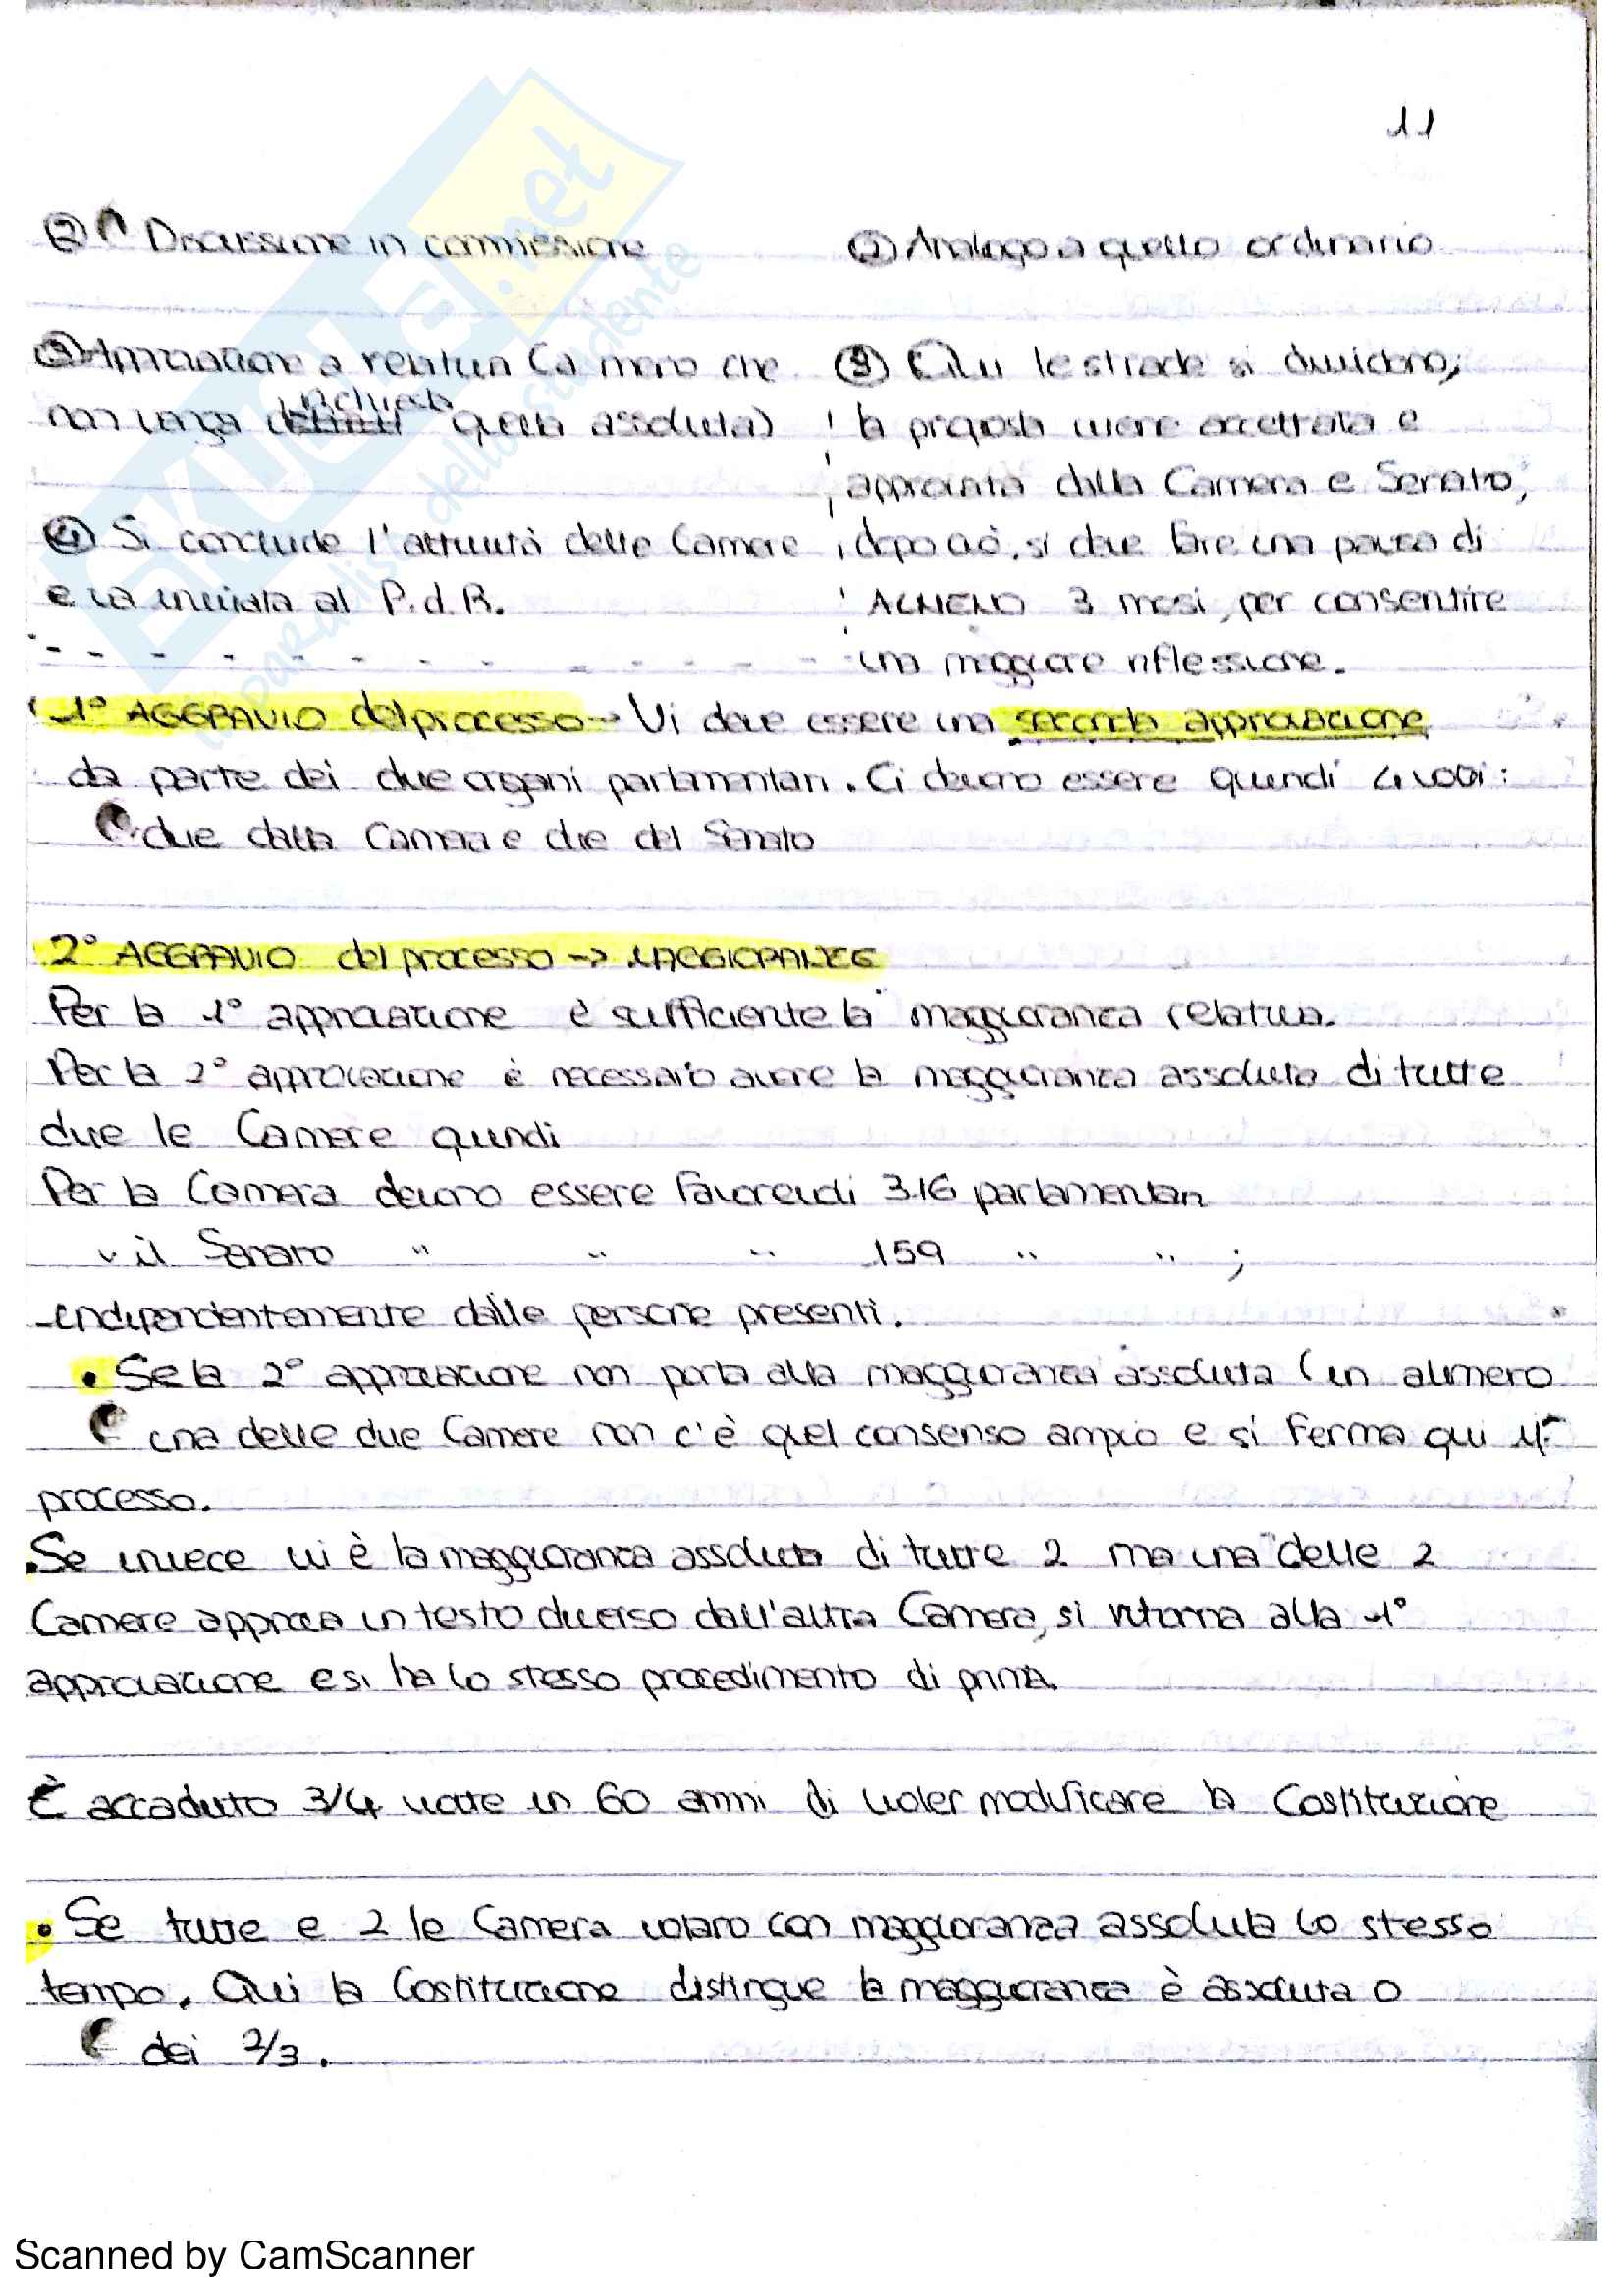 11
② Discussione in commissione
③ Approvazione a relativa (a meno che
non venga richiesta quella assoluta)
④ Si conclude l'attività delle Camere
e va inviata al P.d.R.
② Analogo a quello ordinario
③ Qui le strade si dividono,
la proposta viene accettata e
approvata dalla Camera e Senato,
dopo ciò, si deve fare una pausa di
ALMENO 3 mesi, per consentire
una maggiore riflessione.
1° AGGRAVIO del processo → Vi deve essere una seconda approvazione
da parte dei due organi parlamentari. Ci devono essere quindi 4 voti:
due dalla Camera e due del Senato
2° AGGRAVIO del processo → MAGGIORANZE
Per la 1° approvazione è sufficiente la maggioranza relativa.
Per la 2° approvazione è necessario avere la maggioranza assoluta di tutte
due le Camere quindi
Per la Camera devono essere favorevoli 316 parlamentari
" il Senato " " " 159 " " ;
indipendentemente dalle persone presenti.
• Se la 2° approvazione non porta alla maggioranza assoluta (in almeno
una delle due Camere non c'è quel consenso ampio e si ferma qui il
processo.
• Se invece vi è la maggioranza assoluta di tutte 2 ma una delle 2
Camere approva un testo diverso dall'altra Camera, si ritorna alla 1°
approvazione e si ha lo stesso procedimento di prima.
È accaduto 3/4 volte in 60 anni di voler modificare la Costituzione
• Se tutte e 2 le Camera votano con maggioranza assoluta lo stesso
tempo. Qui la Costituzione distingue la maggioranza è assoluta o
dei 2/3.
SKUOLA.net
il paradiso dello studente
Scanned by CamScanner